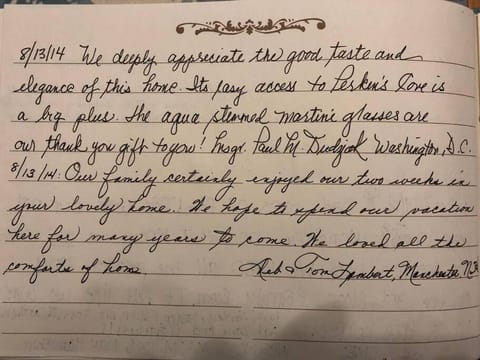 8/13/14 We deeply appreciate the good taste and
elegance of this home. Its easy access to Perkin's Cove is
a big plus. The aqua stemmed martini glasses are
our thank you gift to you! Msgr. Paul M. Dudziak Washington, D.C.
8/13/14: Our family certainly enjoyed our two weeks in
your lovely home. We hope to spend our vacation
here for many years to come. We loved all the
comforts of home. Deb & Tom Lambert, Manchester, N.H.